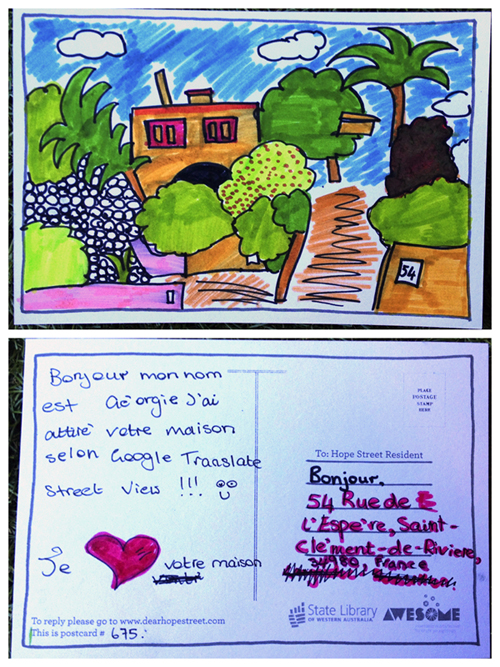 54
Bonjour mon nom
est Géorgie J'ai
attiré votre maison
selon Google Translate
street view !!!
Je votre maison
To reply please go to www.dearhopestreet.com
This is postcard # 675.
PLACE
POSTAGE
STAMP
HERE
To: Hope Street Resident
Bonjour.
54 Rue de E
L'Espère, Saint-
Clément-de-Rivière,
34980, France
State Library
OF WESTERN AUSTRALIA
AWESOME